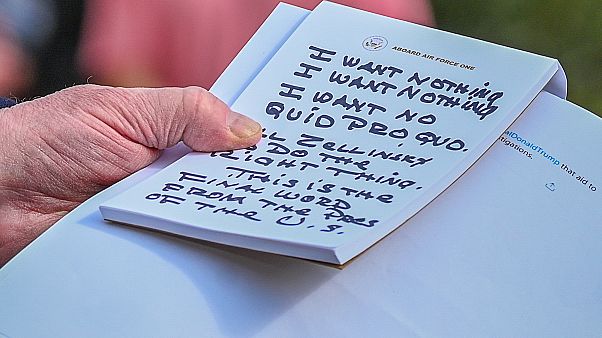 ABOARD AIR FORCE ONE
I WANT NOTHING
I WANT NOTHING
I WANT NO
QUID PRO QUO.
ZELLINSKY
DO THE
RIGHT THING.
THIS IS THE
FINAL WORD
FROM THE PRES
OF THE U.S.
alDonaldTrump that aid to
tigations.